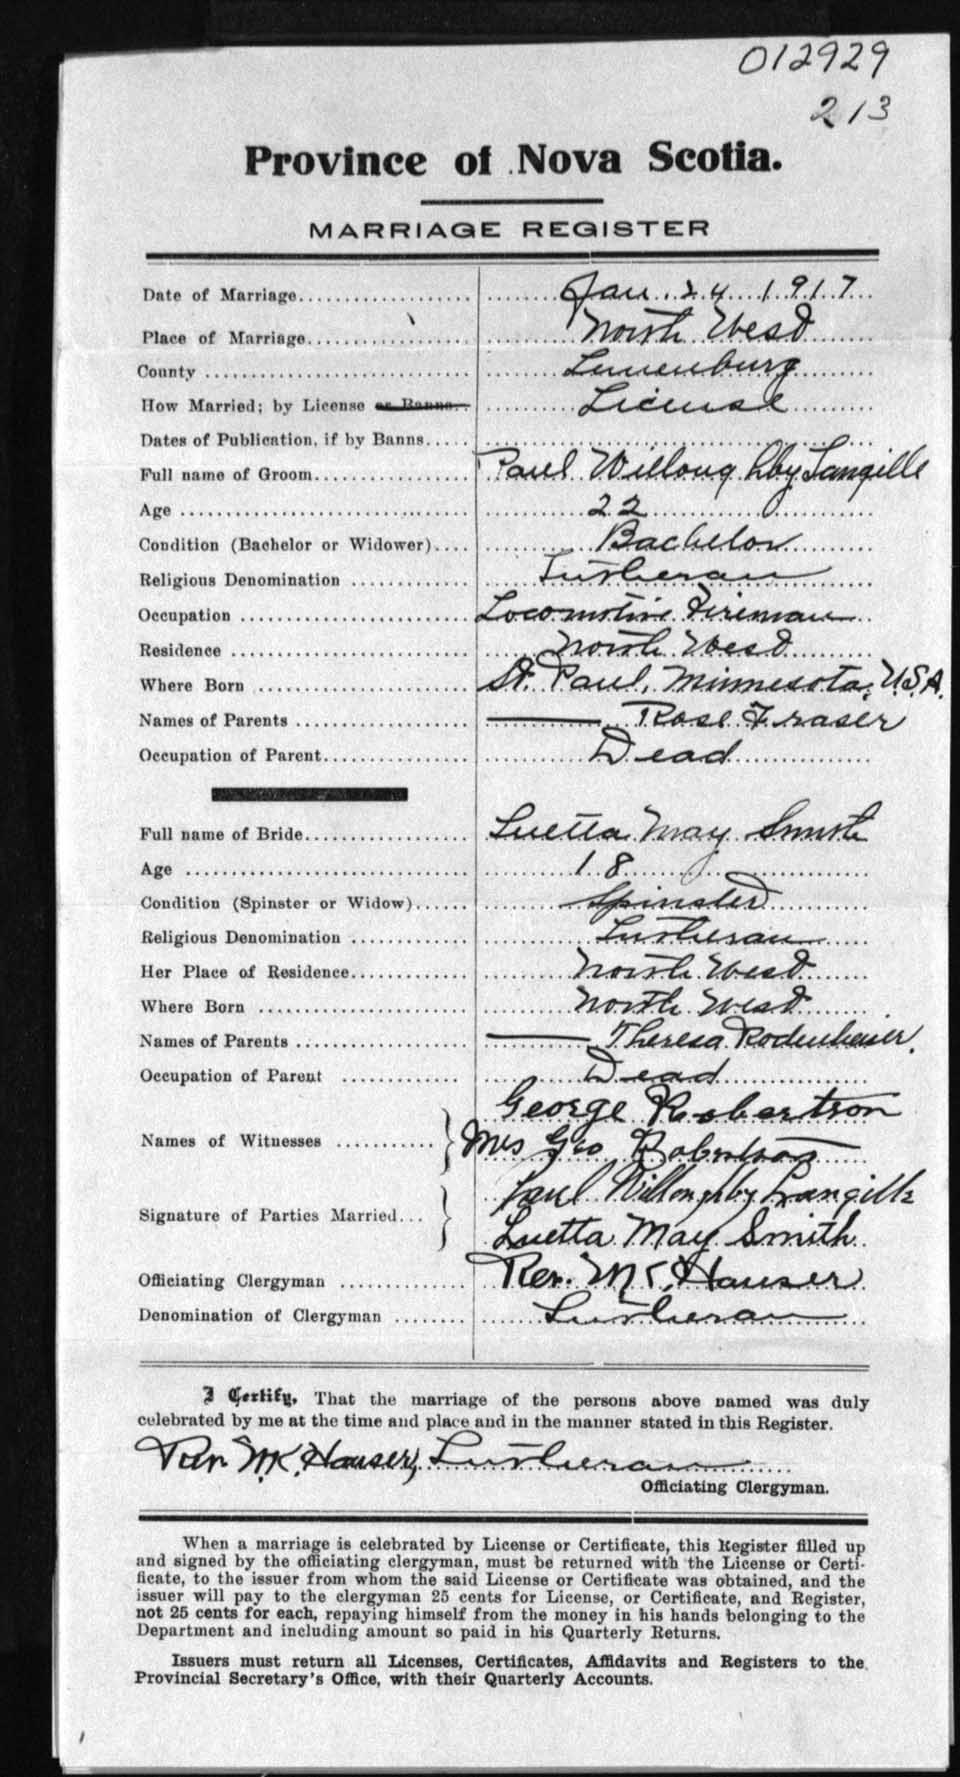 012929
213
Province of Nova Scotia.
MARRIAGE REGISTER
Date of Marriage Jan 24 1917
Place of Marriage North West
County Lunenburg
How Married; by License or Banns License
Dates of Publication, if by Banns
Full name of Groom Paul Willoughby Langille
Age 22
Condition (Bachelor or Widower) Bachelor
Religious Denomination Lutheran
Occupation Locomotive Fireman
Residence North West
Where Born St. Paul, Minnesota, U.S.A.
Names of Parents —— Rose Fraser
Occupation of Parent Dead
Full name of Bride Luetta May Smith
Age 18
Condition (Spinster or Widow) Spinster
Religious Denomination Lutheran
Her Place of Residence North West
Where Born North West
Names of Parents —— Theresa Rodenheiser.
Occupation of Parent Dead
George Robertson
Names of Witnesses Mrs Geo Robertson
Paul Willoughby Langille
Signature of Parties Married
Luetta May Smith
Officiating Clergyman Rev. M K. Hauser
Denomination of Clergyman Lutheran
I Certify, That the marriage of the persons above named was duly
celebrated by me at the time and place and in the manner stated in this Register.
Rev. M. K. Hauser, Lutheran
Officiating Clergyman.
When a marriage is celebrated by License or Certificate, this Register filled up
and signed by the officiating clergyman, must be returned with the License or Certi-
ficate, to the issuer from whom the said License or Certificate was obtained, and the
issuer will pay to the clergyman 25 cents for License, or Certificate, and Register,
not 25 cents for each, repaying himself from the money in his hands belonging to the
Department and including amount so paid in his Quarterly Returns.
Issuers must return all Licenses, Certificates, Affidavits and Registers to the
Provincial Secretary's Office, with their Quarterly Accounts.